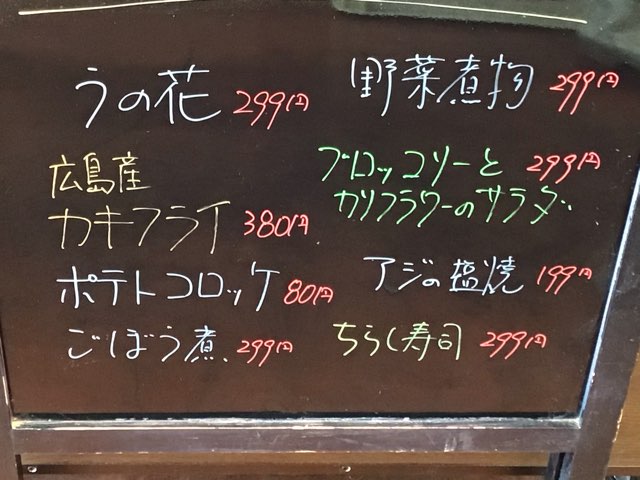 うの花 299円
広島産
カキフライ 380円
ポテトコロッケ 80円
ごぼう煮 299円
野菜煮物 299円
ブロッコリーと 299円
カリフラワーのサラダ
アジの塩焼 199円
ちらし寿司 299円